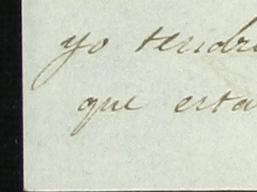 yo tendr
que esta